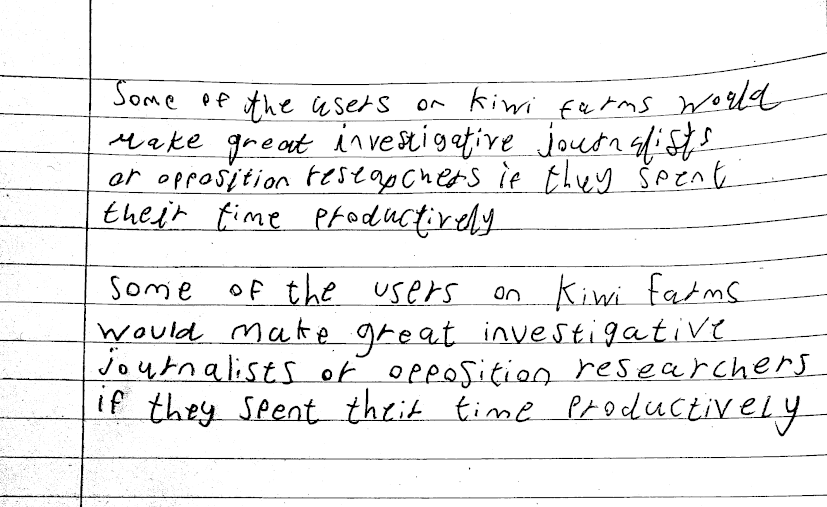 Some of the users on kiwi farms would
make great investigative journalists
or opposition researchers if they spent
their time productively
Some of the users on kiwi farms
would make great investigative
journalists or opposition researchers
if they spent their time productively